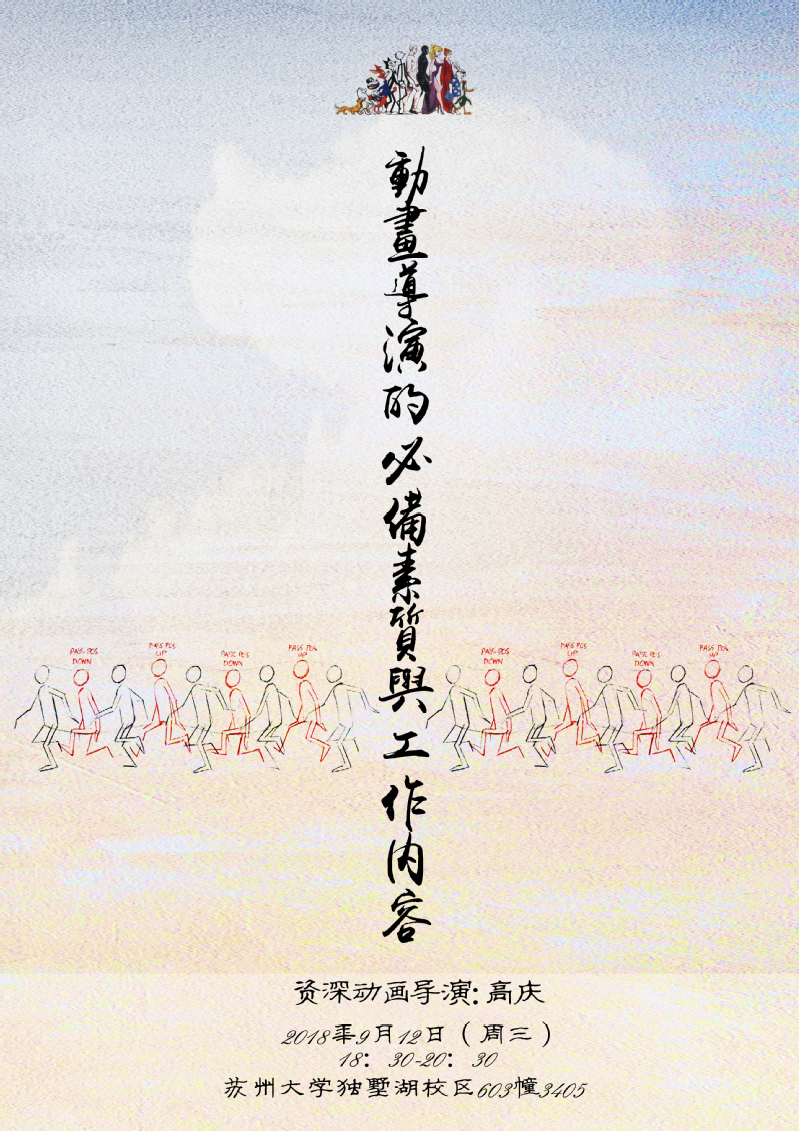 動畫導演的必備素質與工作内容
PASS POS
DOWN
PASS POS
UP
PASS POS
DOWN
PASS POS
UP
PASS POS
DOWN
PASS POS
UP
PASS POS
DOWN
PASS POS
UP
资深动画导演:高庆
2018年9月12日（周三）
18：30-20：30
苏州大学独墅湖校区603幢3405